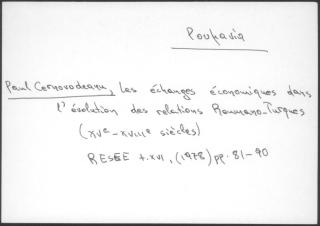 Ρουμανία
Paul Cernovodeanu, Les échanges économiques dans
l'évolution des relations Roumano-Turques
(XVe-XVIIIe siècles)
RESEE t.XVI, (1978) pp. 81-90